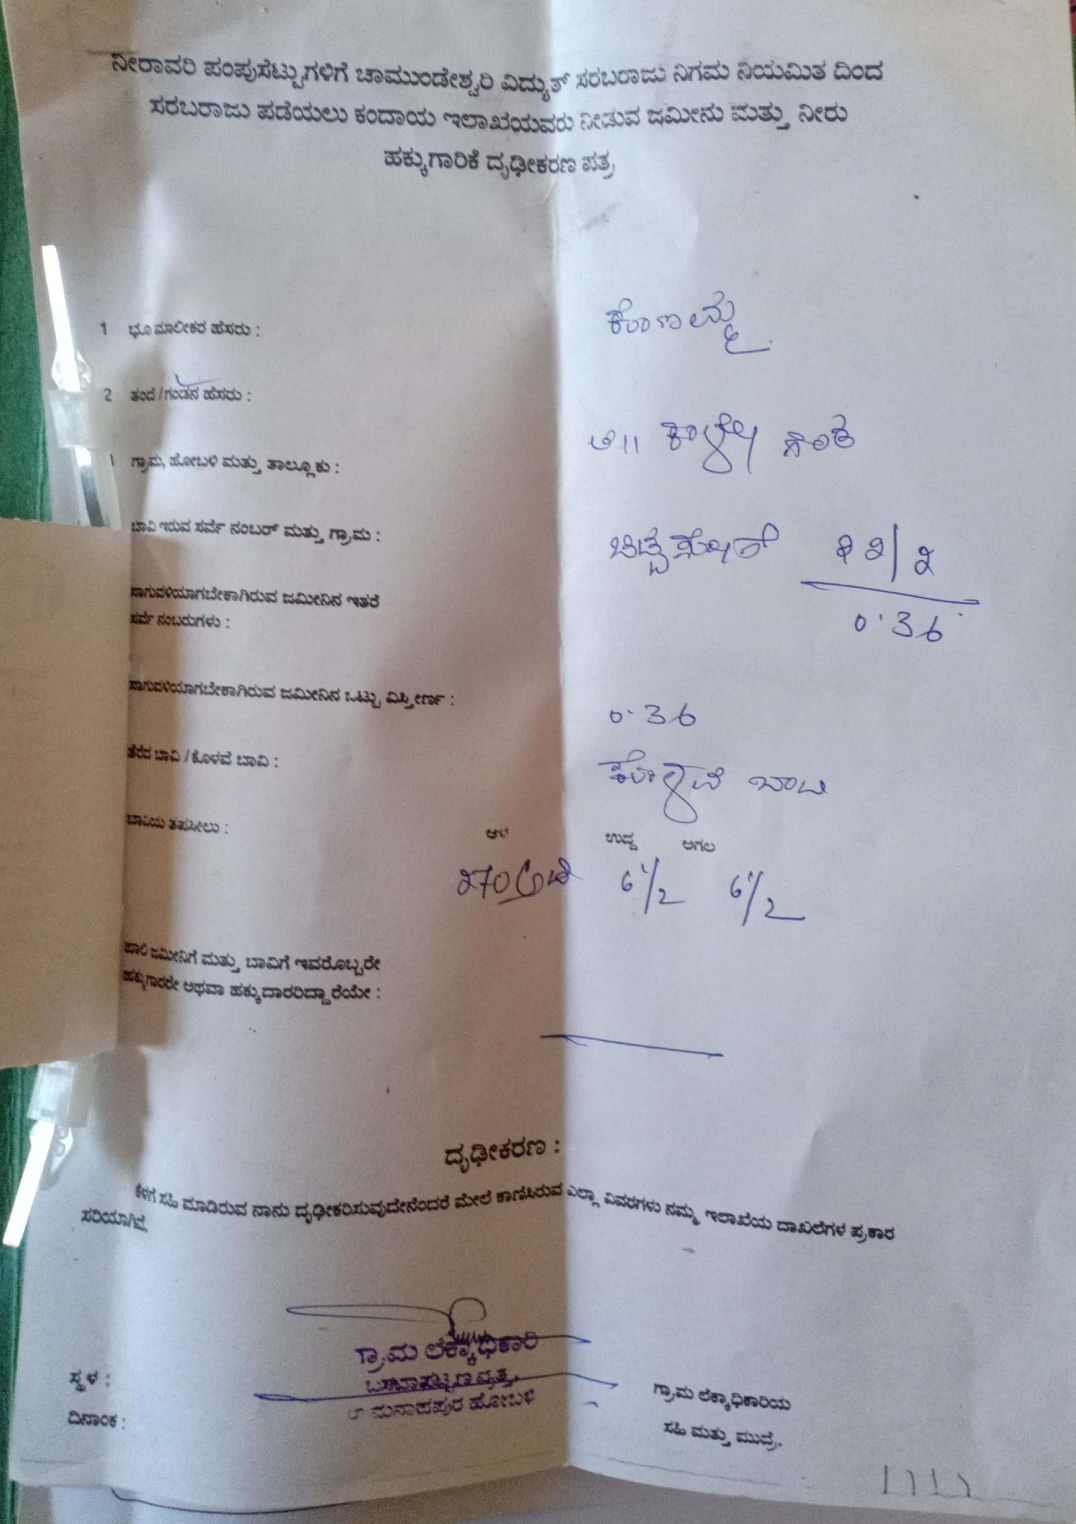 ನೀರಾವರಿ ಪಂಪುಸೆಟ್ಟುಗಳಿಗೆ ಚಾಮುಂಡೇಶ್ವರಿ ವಿದ್ಯುತ್ ಸರಬರಾಜು ನಿಗಮ ನಿಯಮಿತ ದಿಂದ
ಸರಬರಾಜು ಪಡೆಯಲು ಕಂದಾಯ ಇಲಾಖೆಯವರು ನೀಡುವ ಜಮೀನು ಮತ್ತು ನೀರು
ಹಕ್ಕುಗಾರಿಕೆ ದೃಢೀಕರಣ ಪತ್ರ
1 ಭೂ ಮಾಲೀಕರ ಹೆಸರು :
2 ತಂದೆ / ಗಂಡನ ಹೆಸರು :
ಗ್ರಾಮ, ಹೋಬಳಿ ಮತ್ತು ತಾಲ್ಲೂಕು :
ಬಾವಿ ಇರುವ ಸರ್ವೆ ನಂಬರ್ ಮತ್ತು ಗ್ರಾಮ :
ಸಾಗುವಳಿಯಾಗಬೇಕಾಗಿರುವ ಜಮೀನಿನ ಇತರೆ
ಸರ್ವೆ ನಂಬರುಗಳು : 0.36
ಸಾಗುವಳಿಯಾಗಬೇಕಾಗಿರುವ ಜಮೀನಿನ ಒಟ್ಟು ವಿಸ್ತೀರ್ಣ : 0.36
ತೆರೆದ ಬಾವಿ / ಕೊಳವೆ ಬಾವಿ : ಕೊಳವೆ ಬಾವಿ
ಬಾವಿಯ ತಪಸೀಲು : ಆಳ ಉದ್ದ ಅಗಲ
270 ಅಡಿ 6 1/2 6 1/2
ಹಾಲಿ ಜಮೀನಿಗೆ ಮತ್ತು ಬಾವಿಗೆ ಇವರೊಬ್ಬರೇ
ಹಕ್ಕುಗಾರರೇ ಅಥವಾ ಹಕ್ಕುದಾರರಿದ್ದಾರೆಯೇ :
ದೃಢೀಕರಣ :
ಕೆಳಗೆ ಸಹಿ ಮಾಡಿರುವ ನಾನು ದೃಢೀಕರಿಸುವುದೇನೆಂದರೆ ಮೇಲೆ ಕಾಣಿಸಿರುವ ಎಲ್ಲಾ ವಿವರಗಳು ನಮ್ಮ ಇಲಾಖೆಯ ದಾಖಲೆಗಳ ಪ್ರಕಾರ
ಸರಿಯಾಗಿವೆ.
ಗ್ರಾಮ ಲೆಕ್ಕಾಧಿಕಾರಿ
ಬಸವಾಪಟ್ಟಣ ವೃತ್ತ,
ರಾಮನಾಥಪುರ ಹೋಬಳಿ
ಸ್ಥಳ :
ದಿನಾಂಕ :
ಗ್ರಾಮ ಲೆಕ್ಕಾಧಿಕಾರಿಯ
ಸಹಿ ಮತ್ತು ಮುದ್ರೆ.